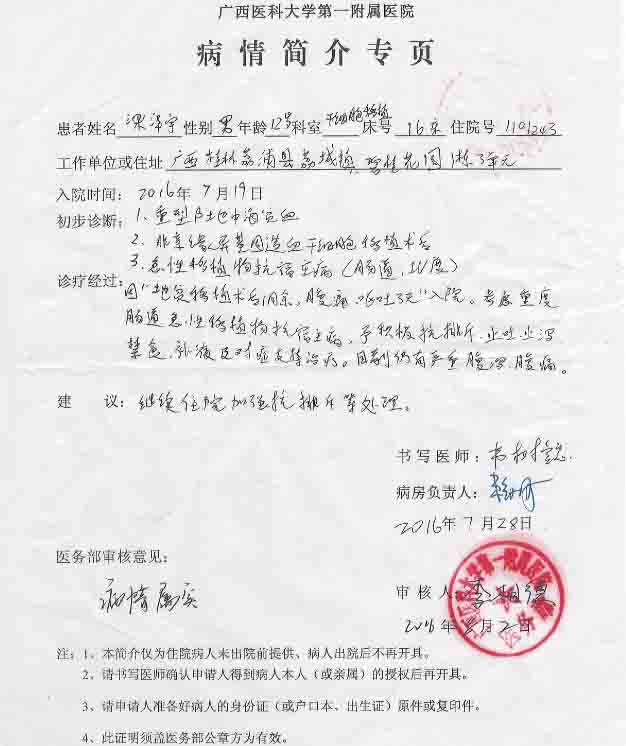 广西医科大学第一附属医院
病情简介专页
患者姓名 梁泽宇 性别 男 年龄 12岁 科室 干细胞移植 床号 16床 住院号 1101243
工作单位或住址 广西桂林荔浦县荔城镇 花园 栋 单元
入院时间:2016年7月19日
初步诊断:1.重型β地中海贫血
2.非亲缘异基因造血干细胞移植术后
3.急性移植物抗宿主病(肠道,IV度)
诊疗经过:
因“地贫移植术后 余,腹痛、呕吐3天”入院。考虑重度
肠道急性移植物抗宿主病,予积极抗排斥、止吐、止泻
禁食、补液及对症支持治疗。目前仍有严重腹泻、腹痛。
建 议:继续住院加强抗排斥等处理。
书写医师:
病房负责人:
2016年7月28日
医务部审核意见:
病情属实
审核人
2016年8月2日
注:1、本简介仅为住院病人未出院前提供、病人出院后不再开具。
2、请书写医师确认申请人得到病人本人(或亲属)的授权后再开具。
3、请申请人准备好病人的身份证(或户口本、出生证)原件或复印件。
4、此证明须盖医务部公章方为有效。